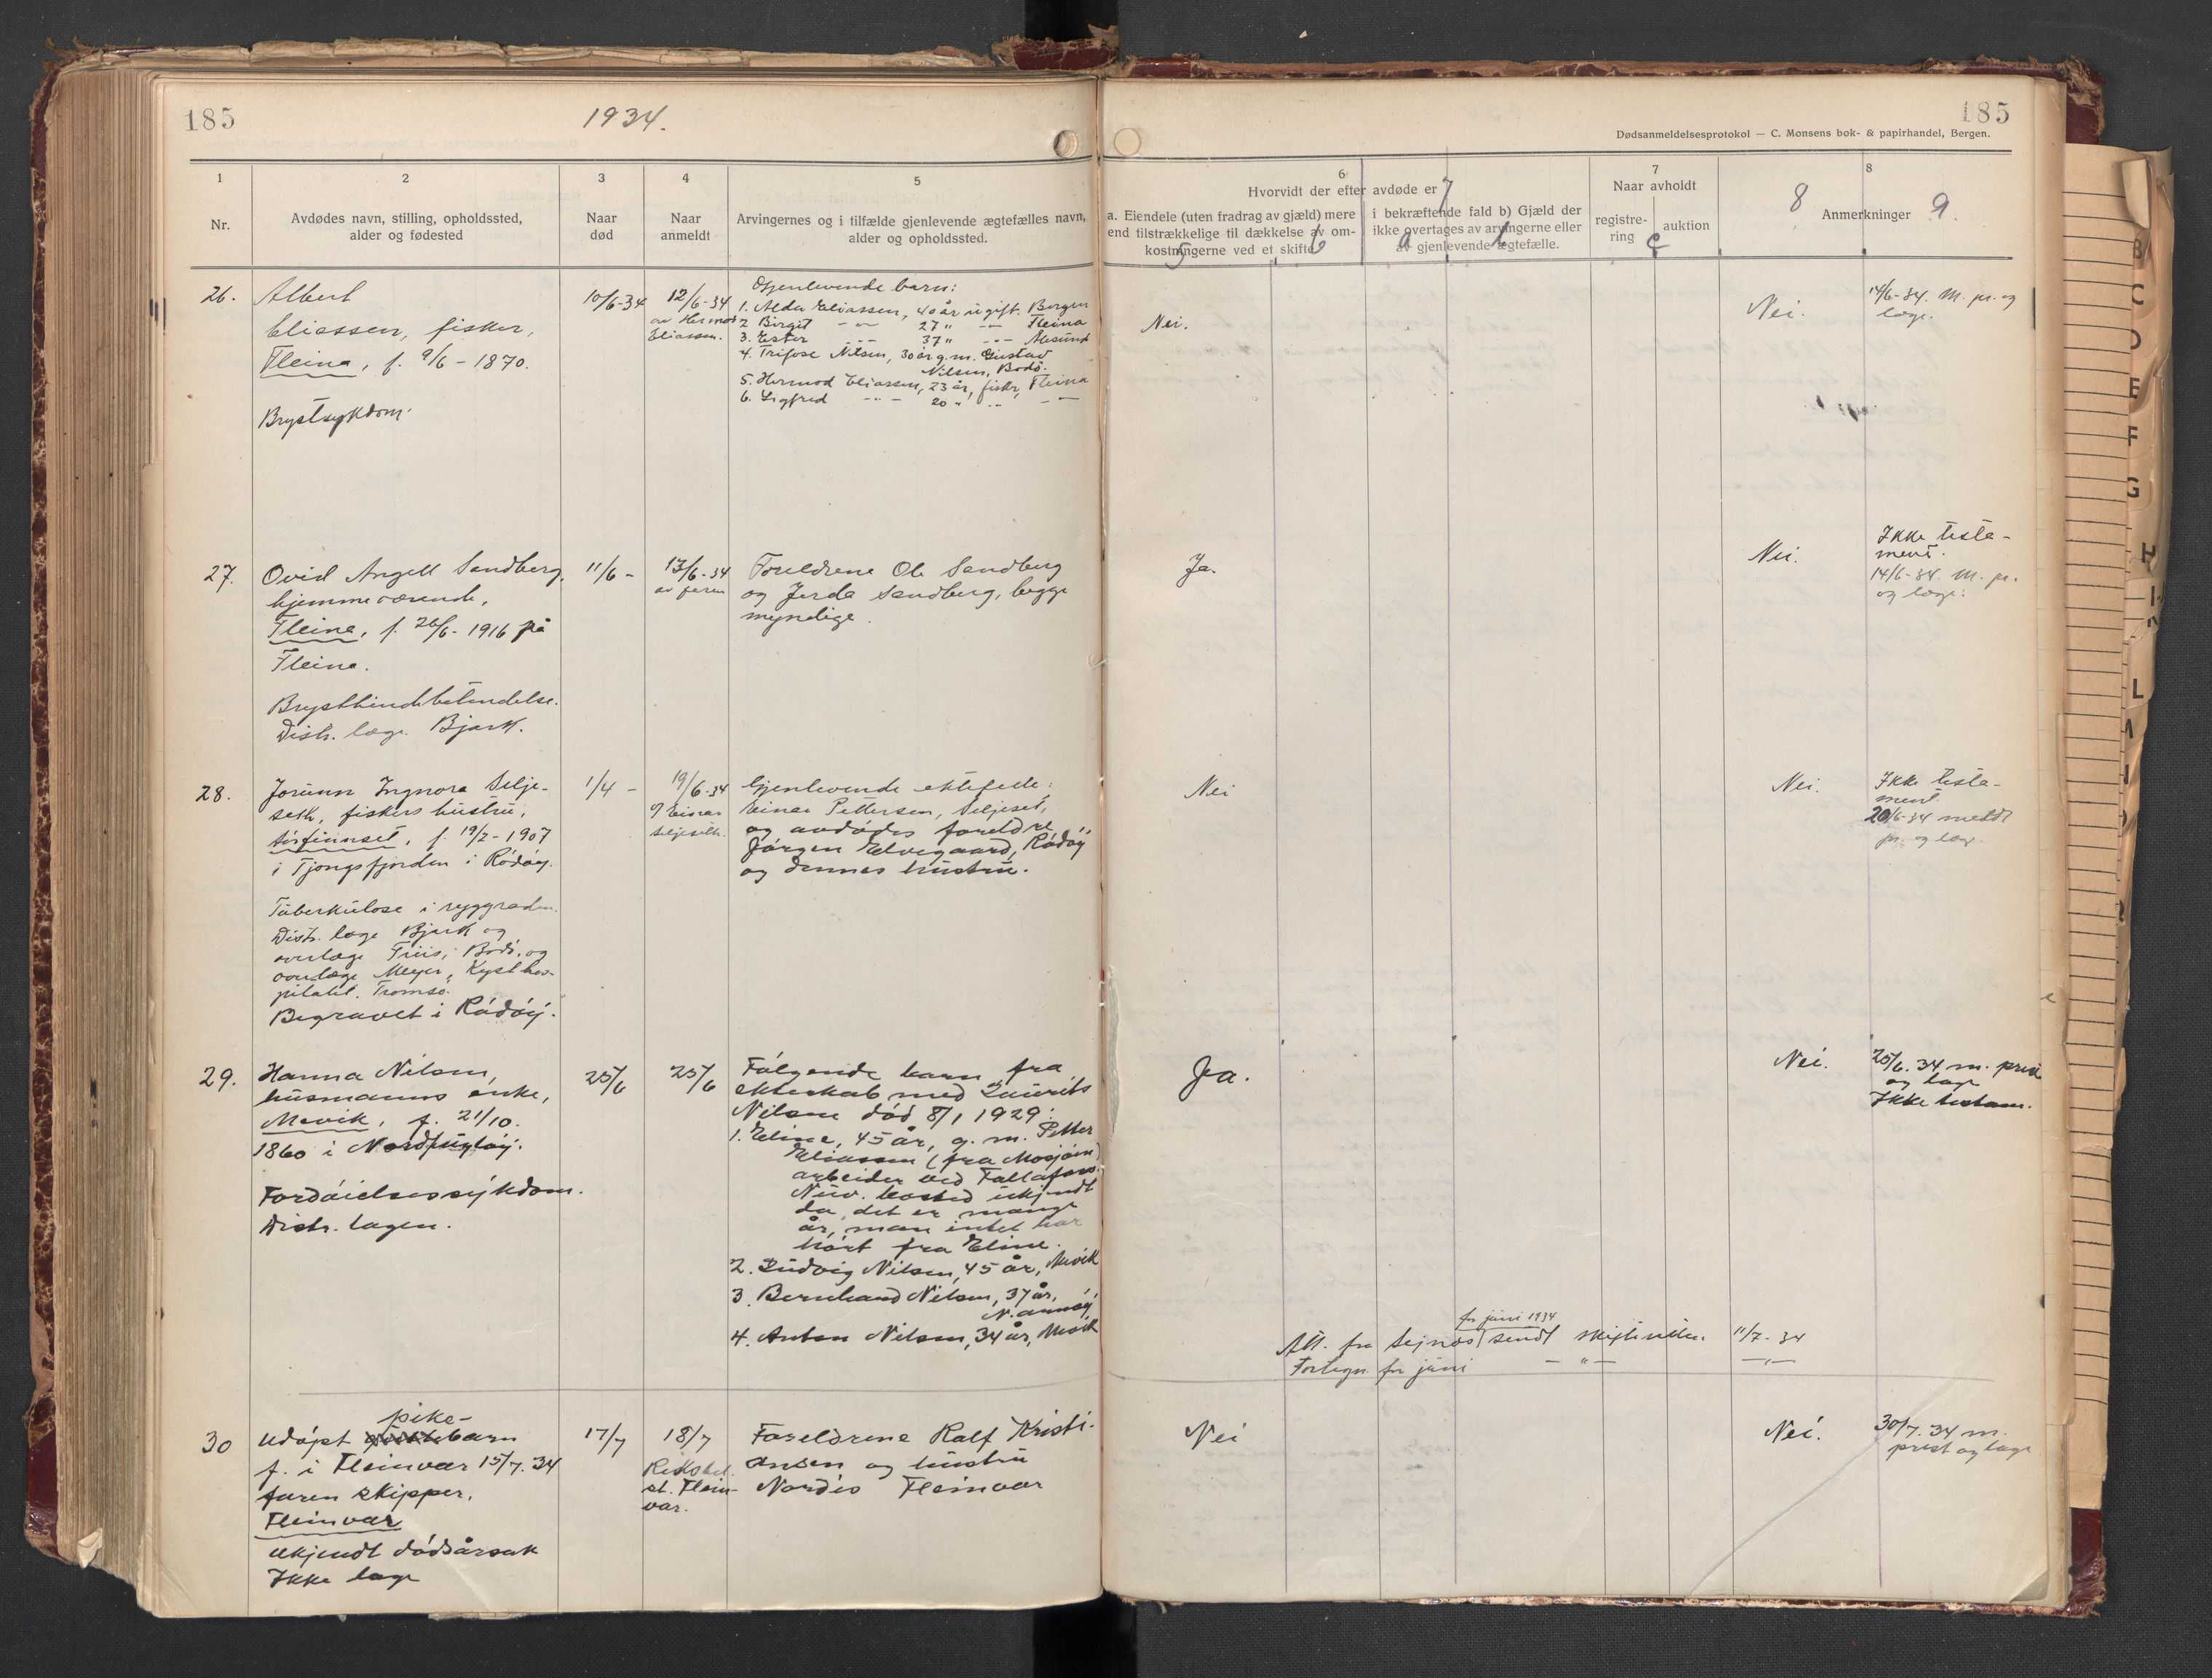 185
1934.
185
Dødsanmeldelsesprotokol — C. Monsens bok- & papirhandel, Bergen.
1
Nr.
2
Avdødes navn, stilling, opholdssted,
alder og fødested
3
Naar
død
4
Naar
anmeldt
5
Arvingernes og i tilfælde gjenlevende ægtefælles navn,
alder og opholdssted.
6
Hvorvidt der efter avdøde er
7
a. Eiendele (uten fradrag av gjæld) mere
end tilstrækkelige til dækkelse av om-
kostningerne ved et skifte
5
6
i bekræftende fald b) Gjæld der
ikke overtages av arvingerne eller
av gjenlevende ægtefælle.
a
b
7
Naar avholdt
registre-
ring
auktion
c
8
8
Anmerkninger
9.
26.
Albert
Eliassen, fisker,
Fleina, f. 9/6 - 1870.
Brystsykdom.
10/6-34
12/6-34
av Hermod
Eliassen.
Gjenlevende barn:
1. Alda Eliassen, 40 år ugift. Bergen
2 Birgit -"- 27 " -"- Fleina
3. Ester -"- 37 " -"- Ålesund
4. Trifose Nilsen, 30 år g.m. Gustav
Nilsen, Bodø.
5. Hermod Eliassen, 23 år, fisker, Fleina
6. Sigfred -"- 20 " -"- -"-
Nei.
Nei.
14/6-34. M. pr. og
læge.
27.
Ovid Angell Sandberg,
hjemmeværende,
Fleina, f. 26/6 - 1916 på
Fleina.
Brysthindebetendelse.
Distr. læge Bjark.
11/6 -
13/6-34
av faren
Foreldrene Ole Sandberg
og Jerda Sandberg, begge
myndige.
Ja.
Nei.
Ikke testa-
ment.
14/6-34. M. pr.
og læge.
28.
Jorunn Ingnora Selje-
seth, fiskers hustru,
f. 19/2 - 1907
i Tjongsfjorden i Rødøy.
Tuberkulose i ryggraden.
Distr. læge Bjark og
overlæge Friis, Bodø, og
overlæge Meyer, Kysthos-
pitalet. Tromsø.
Begravet i Rødøy.
1/4 -
19/6-34
Einar
Seljeseth.
Gjenlevende ektefelle:
Einar Pettersen, Seljeset,
og avdødes foreldre
Jørgen Elvegaard, Rødøy
og dennes hustru.
Nei
Nei.
Ikke testa-
ment.
20/6-34 meldt
pr. og læg.
29.
Hanna Nilsen,
husmanns enke,
Mevik, f. 21/10.
1860 i Nordfugløy.
Fordøielsessykdom.
Distr. lægen.
25/6
25/6
Følgende barn fra
ekteskab med Laurits
Nilsen død 8/1 1929:
1. Eline, 45 år, g. m. Petter
Eliassen (fra Mosjøen)
arbeider ved
Nuv. bosted ukjendt
da det er mange
år, man intet har
hørt fra Eline.
2. Ludvig Nilsen, 45 år, Mevik
3. Bernhard Nilsen, 37 år,
4. Anton Nilsen, 34 år, Mevik
Ja.
Nei.
25/6.34 m. prest
og læge
Ikke testam.
for juni 1934
Att. fra sendt 11/7-34
Fortegn. for juni -"- -"-
30
pike-
Udøpt barn
f. i Fleinvær 15/7.34
faren skipper.
Fleinvær
Ukjendt dødsårsak
Ikke læge
17/7
18/7
Rikstel.
st. Flein-
vær.
Foreldrene Ralf Kristi-
ansen og hustru
Nordis Fleinvær
Nei
Nei.
30/7.34 m.
prest og læge
B
C
D
E
F
G
H
K
L